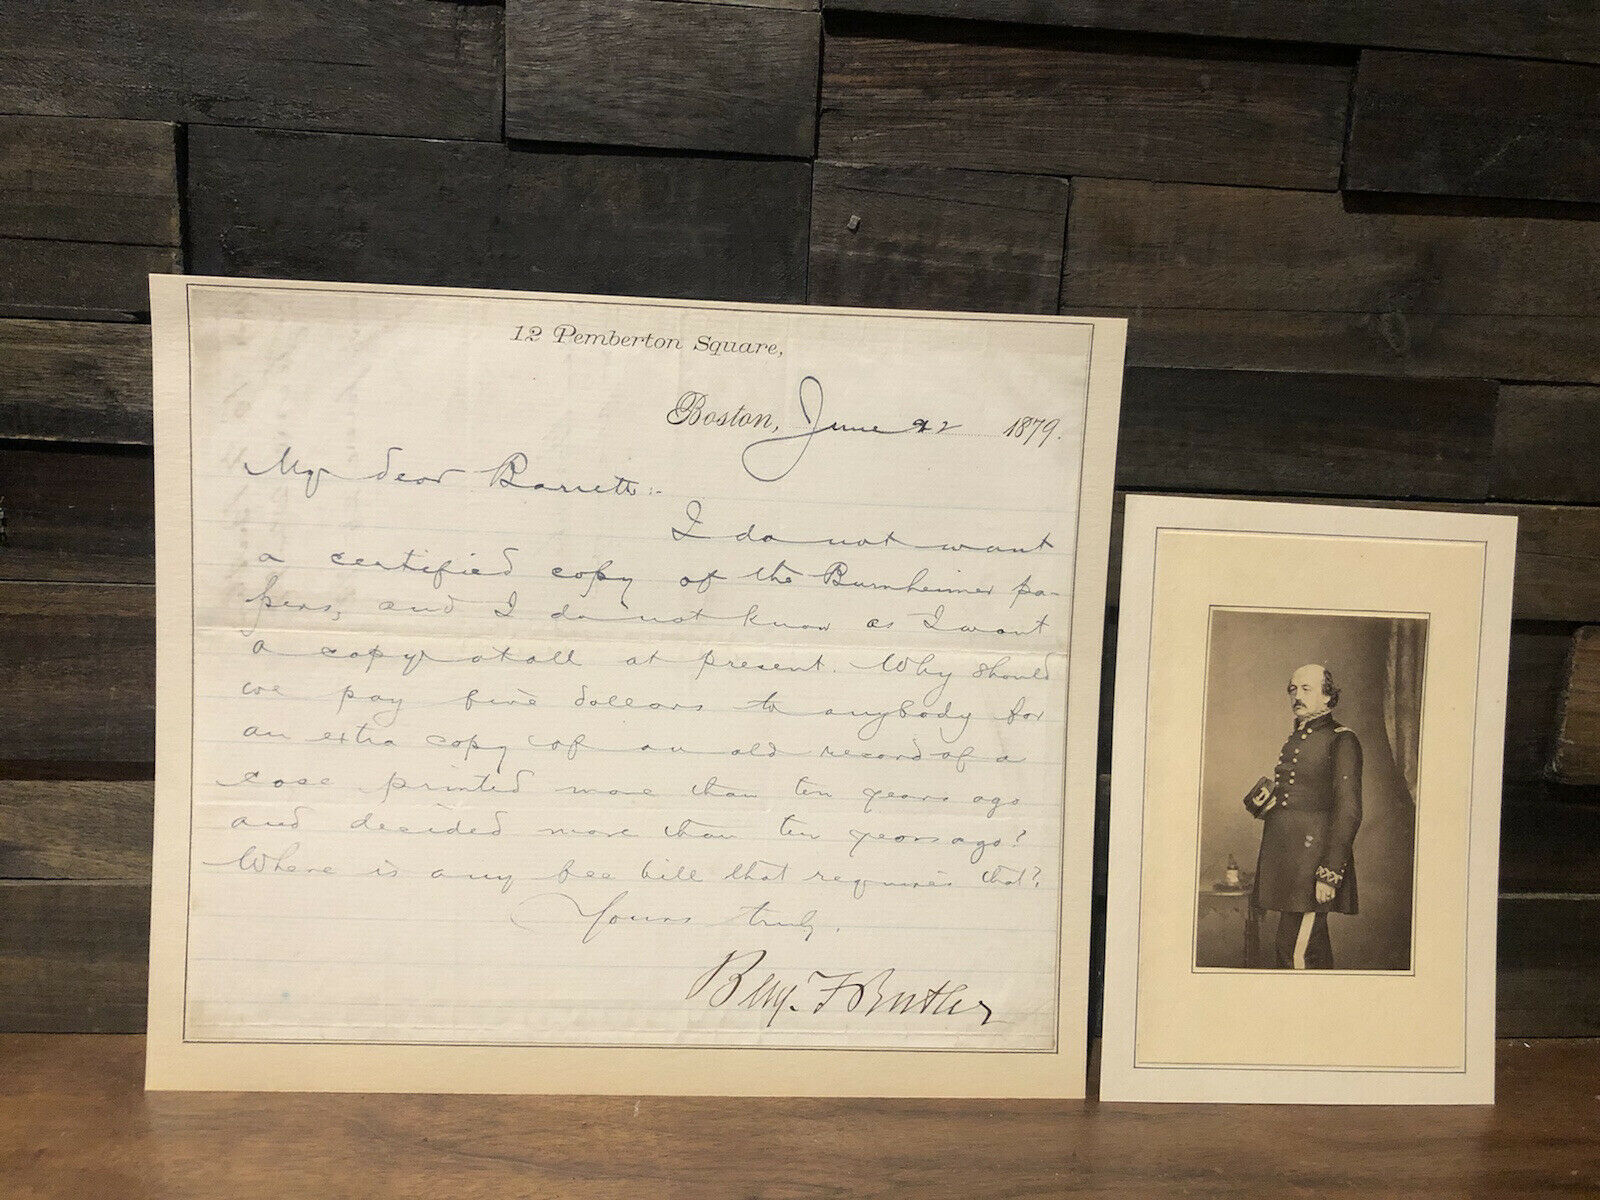 12 Pemberton Square,
Boston, June 22 1879.
My dear Barrett:-
I do not want
a certified copy of the Burnheimer pa-
pers, and I do not know as I want
a copy at all at present. Why should
we pay five dollars to anybody for
an extra copy of an old record of a
case printed more than ten years ago
and decided more than ten years ago?
Where is any fee bill that requires that?
Yours truly,
Benj. F Butler